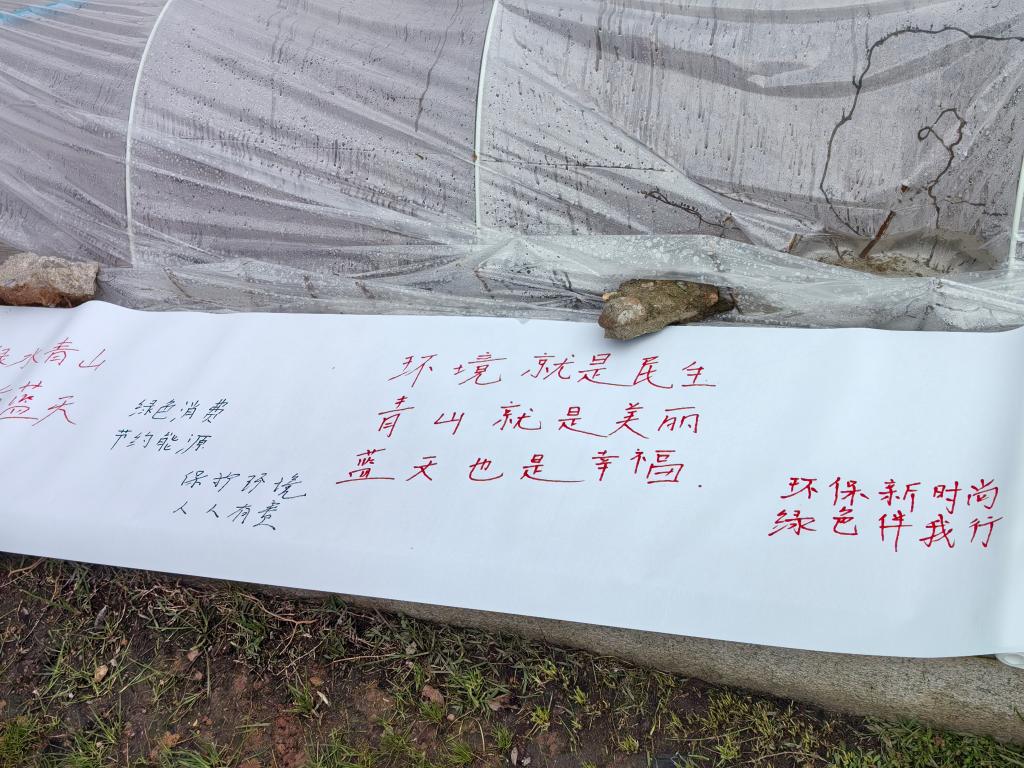 绿水青山
蓝天
绿色消费
节约能源
保护环境
人人有责
环境就是民生
青山就是美丽
蓝天也是幸福.
环保新时尚
绿色伴我行